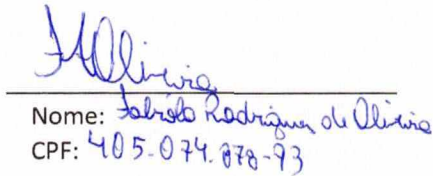 FAOliveira
Nome: Fabíola Rodrigues de Oliveira
CPF: 405.074.878-93